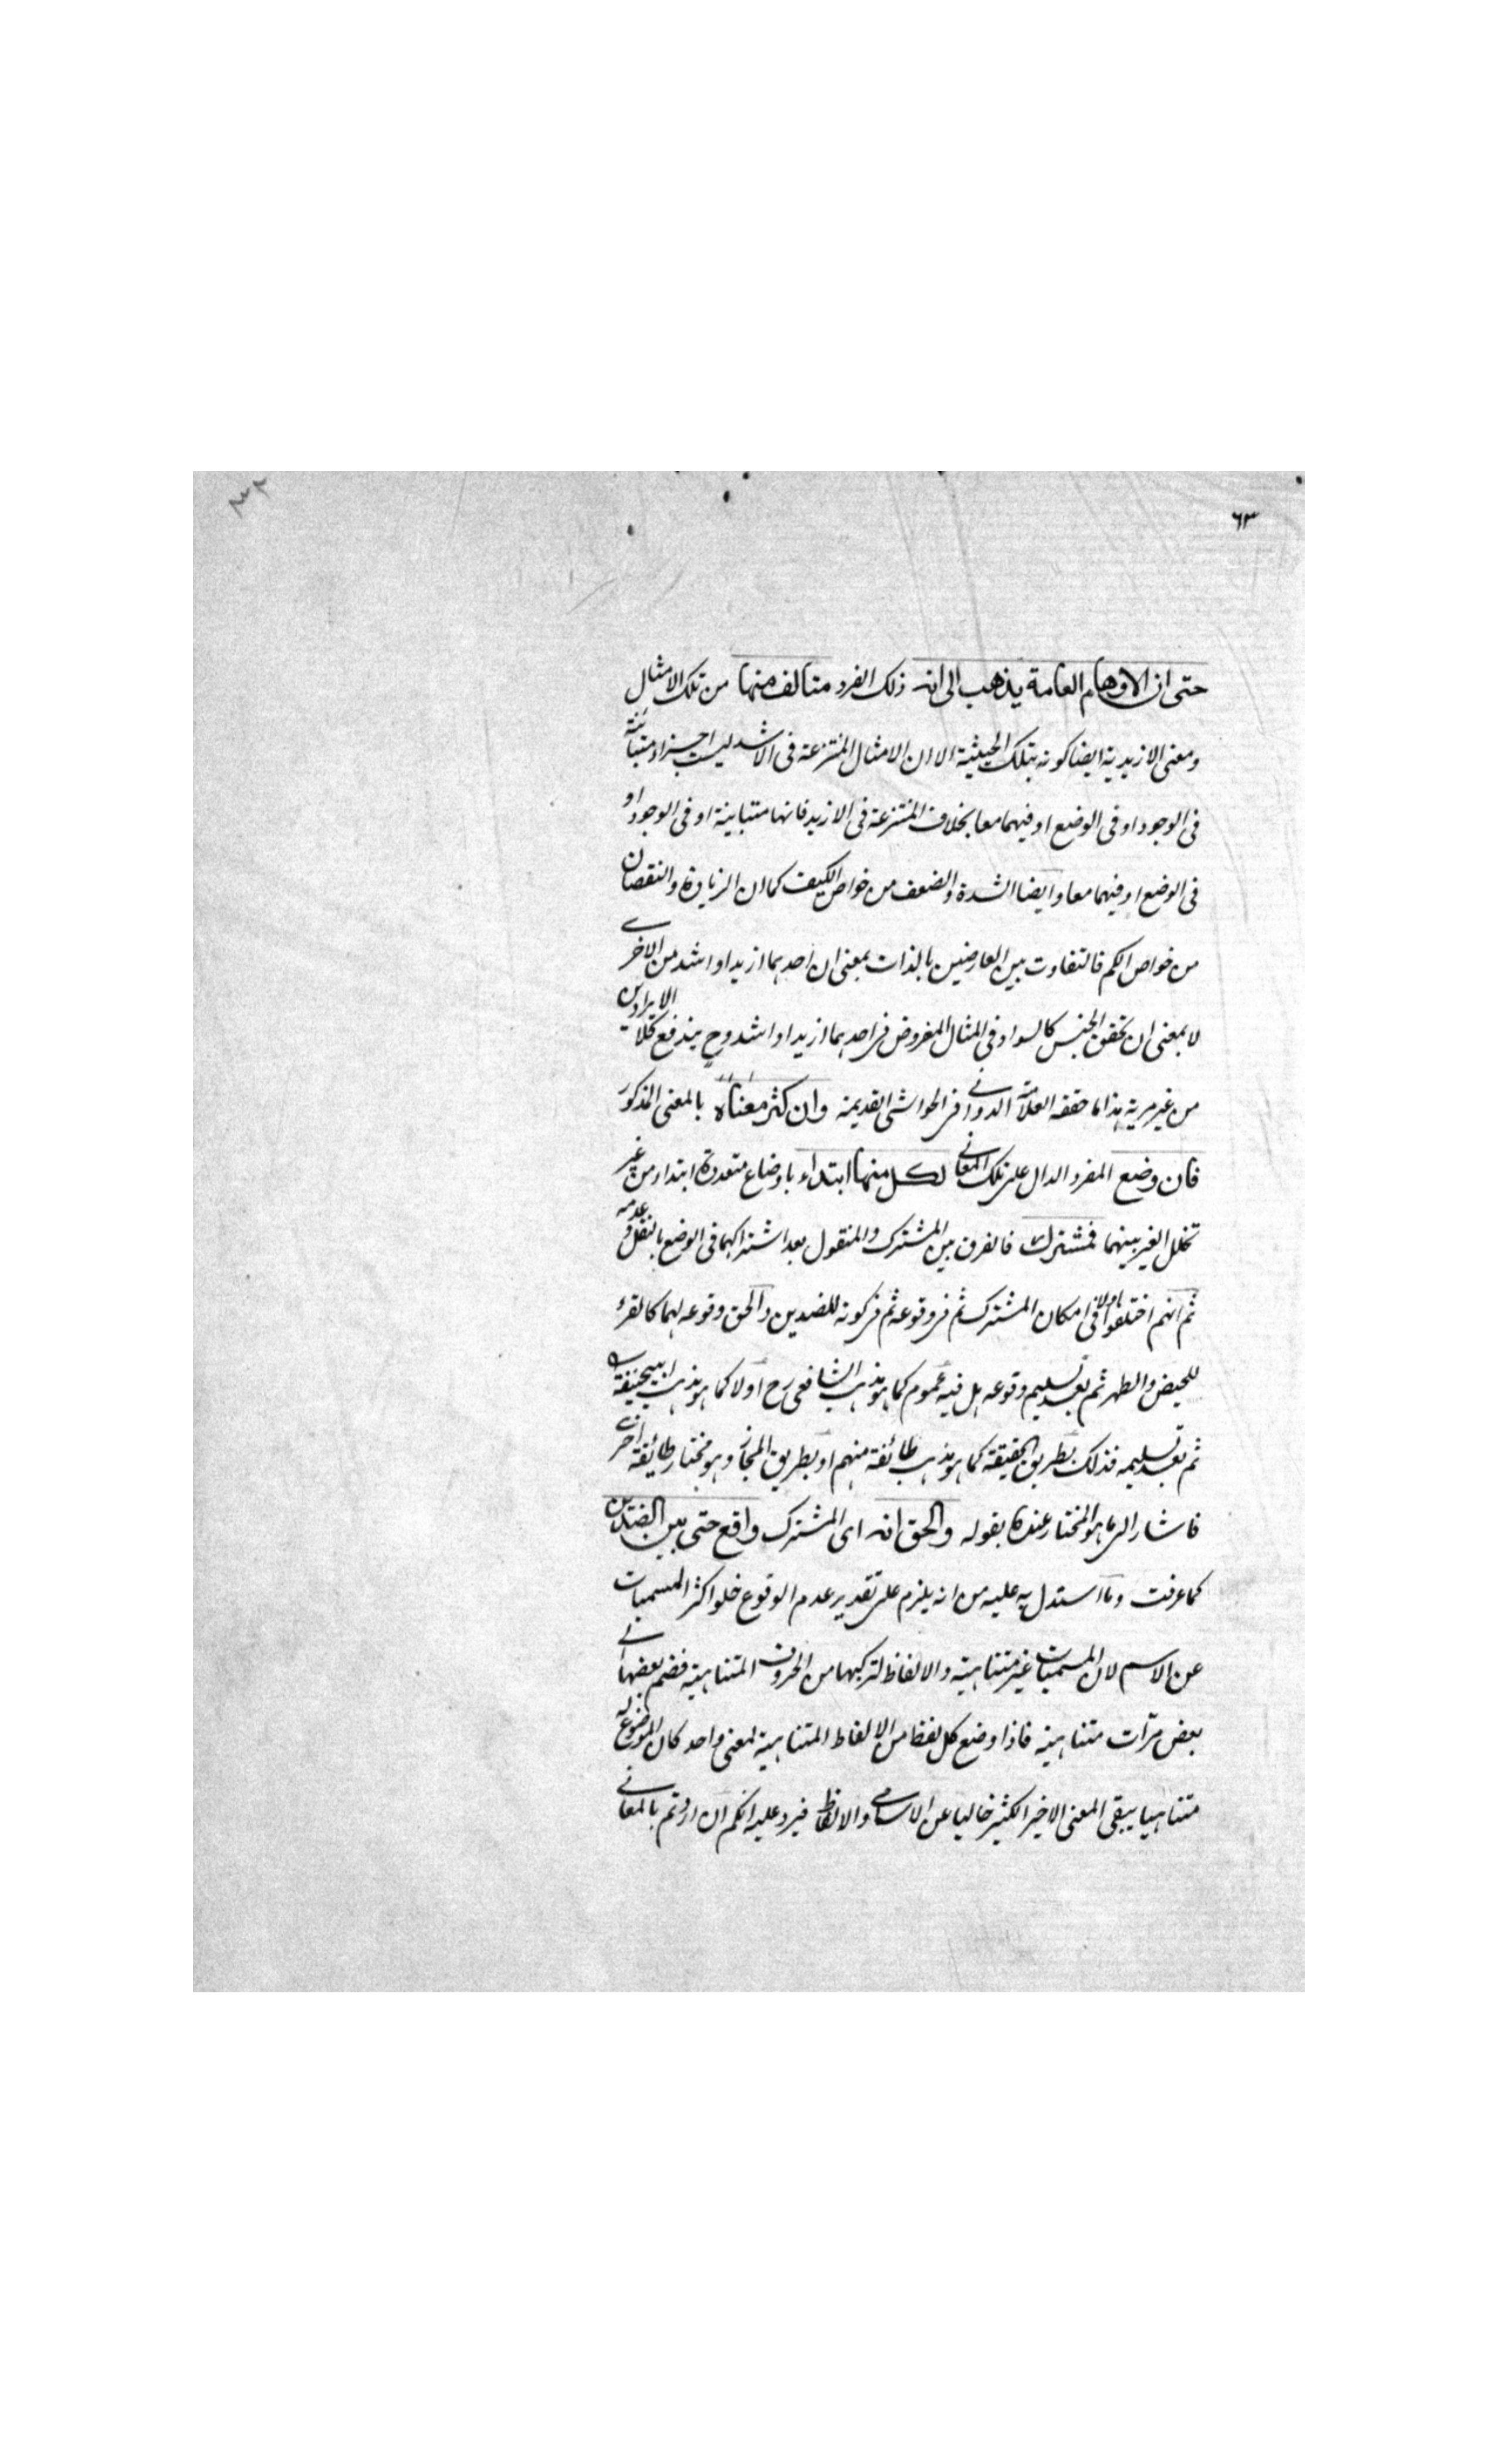 ٦٣
حتى ان الاوهام العامة يذهب الى انه ذلك الفرد متالف منها من تلك الامثال
ومعنى الازيدية ايضا كونه بتلك الحيثية الا ان الامثال المنتزعة فى الاشد ليست اجزاء متباينة
فى الوجود او فى الوضع او فيهما معا بخلاف المنتزعة فى الازيد فانها متباينة او فى الوجود او
فى الوضع او فيهما معا وايضا الشدة والضعف من خواص الكيف كما ان الزيادة والنقصان
من خواص الكم فالتفاوت بين العارضين بالذات بمعنى ان احدهما ازيد او اشد من الاخرى
لا بمعنى ان تحقق الجنس كالسواد فى المثال المفروض فى احدهما ازيد او اشد وح يندفع كلا الايرادين
من غير مرية هذا ما حققه العلامة الدوانى فى الحواشى القديمة وان كثر معناه بالمعنى المذكور
فان وضع المفرد الدال على تلك المعانى لكل منها ابتداء باوضاع متعددة ابتداء من غير
تخلل الغير بينهما فمشترك فالفرق بين المشترك والمنقول بعد اشتراكهما فى الوضع بالنقل وعدمه
ثم انهم اختلفوا اولا فى امكان المشترك ثم فى وقوعه ثم فى كونه للضدين والحق وقوعه لهما كالقرء
للحيض والطهر ثم بعد تسليم وقوعه هل فيه عموم كما هو مذهب الشافعى رح او لا كما هو مذهب ابيحنيفة
ثم بعد تسليمه فذلك بطريق الحقيقة كما هو مذهب طائفة منهم او بطريق المجاز وهو مختار طائفة اخرى
فاشار الى ما هو المختار عنده بقوله والحق انه اى المشترك واقع حتى بين الضدين
كما عرفت وما استدل به عليه من انه يلزم على تقدير عدم الوقوع خلو اكثر المسميات
عن الاسم لان المسميات غير متناهية والالفاظ لتركبها من الحروف المتناهية فضم بعضها الى
بعض مرات متناهية فاذا وضع كل لفظ من الالفاظ المتناهية لمعنى واحد كان الموضوع له
متناهيا يبقى المعنى الاخير الكثير خاليا عن الاسامى والالفاظ فيرد عليه انكم ان اردتم بالمعانى